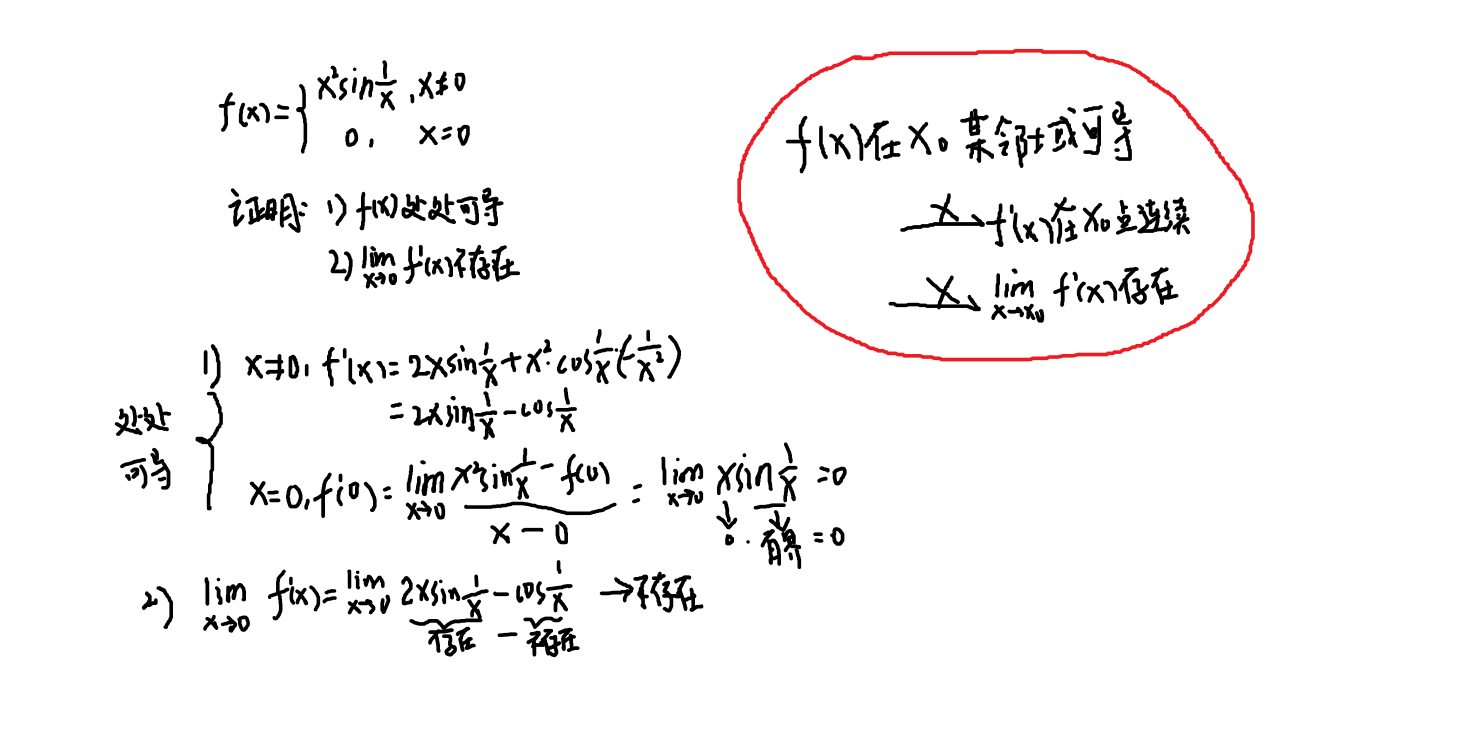 f(x)={ x²sin 1/x , x≠0
0, x=0
证明: 1) f(x)处处可导
2) lim x→0 f'(x)不存在
f(x)在 x₀ 某邻域可导
✗→ f'(x)在x₀点连续
✗→ lim x→x₀ f'(x)存在
1) x≠0, f'(x)=2xsin 1/x + x²·cos 1/x·(-1/x²)
=2xsin 1/x - cos 1/x
处处
可导
x=0, f'(0)= lim x→0 (x²sin 1/x - f(0))/(x-0) = lim x→0 xsin 1/x =0
↓ ↓
0 · 有界 =0
2) lim x→0 f'(x)= lim x→0 2xsin 1/x - cos 1/x →不存在
存在 - 不存在